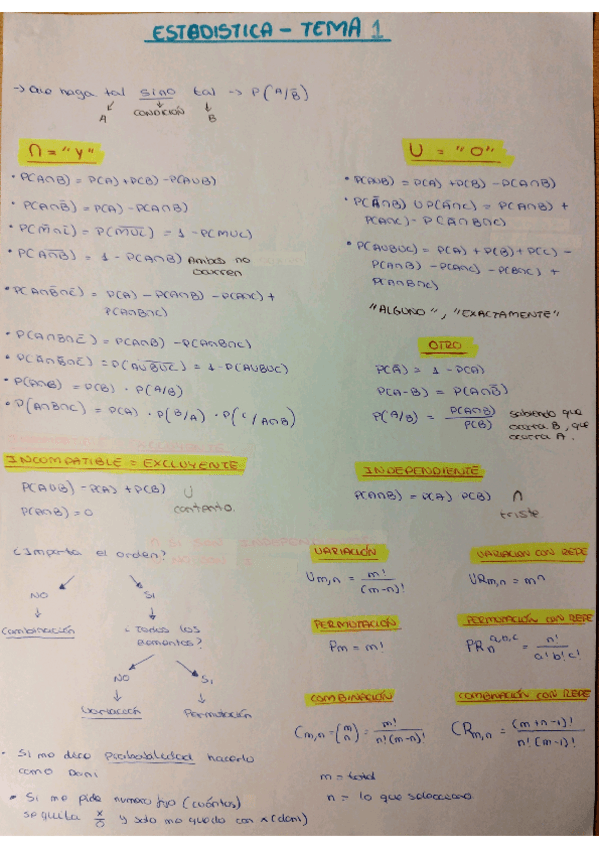 ESTADISTICA - TEMA 1
→ Que haga tal sino tal → P(A/B̄)
A CONDICIÓN B
∩ = "Y"
• P(A∩B) = P(A)+P(B)-P(AUB)
• P(A∩B̄) = P(A)-P(A∩B)
• P(M̄∩C̄) = P(M̅U̅C̅) = 1-P(MUC)
• P(A̅∩̅B̅) = 1-P(A∩B) Ambos no
ocurren
• P(A∩B̄∩C̄) = P(A)-P(A∩B)-P(A∩C)+
P(A∩B∩C)
• P(A∩B∩C̄) = P(A∩B)-P(A∩B∩C)
• P(Ā∩B̄∩C̄) = P(A̅U̅B̅U̅C̅) = 1-P(AUBUC)
• P(A∩B) = P(B) · P(A/B)
• P(A∩B∩C) = P(A) · P(B/A) · P(C/A∩B)
U = "O"
• P(AUB) = P(A)+P(B)-P(A∩B)
• P(Ā∩B) U P(A∩C) = P(A∩B)+
P(A∩C)-P(A∩B∩C)
• P(AUBUC) = P(A)+P(B)+P(C)-
P(A∩B)-P(A∩C)-P(B∩C)+
P(A∩B∩C)
"ALGUNO", "EXACTAMENTE"
OTRO
P(Ā) = 1-P(A)
P(A-B) = P(A∩B̄)
P(A/B) = P(A∩B) / P(B) sabiendo que
ocurra B, que
ocurra A.
INCOMPATIBLE = EXCLUYENTE
P(AUB) = P(A)+P(B) U
contento.
P(A∩B) = 0
INDEPENDIENTE
P(A∩B) = P(A) P(B) ∩
triste
¿Importa el orden?
NO SI
Combinación ¿Todos los
elementos?
NO SI
Variación Permutación
VARIACIÓN
Vm,n = m! / (m-n)!
VARIACION CON REPE
VRm,n = mⁿ
PERMUTACIÓN
Pm = m!
PERMUTACIÓN CON REPE
PRn a,b,c = n! / a! b! c!
COMBINACIÓN
Cm,n = (m n) = m! / n!(m-n)!
COMBINACIÓN CON REPE
CRm,n = (m+n-1)! / n!(m-1)!
m = total
n = lo que selecciono
• Si me dice Probabilidad hacerlo
como Dani
• Si me pide numero fijo (cuántos)
se quita y solo me quedo con x (dani)